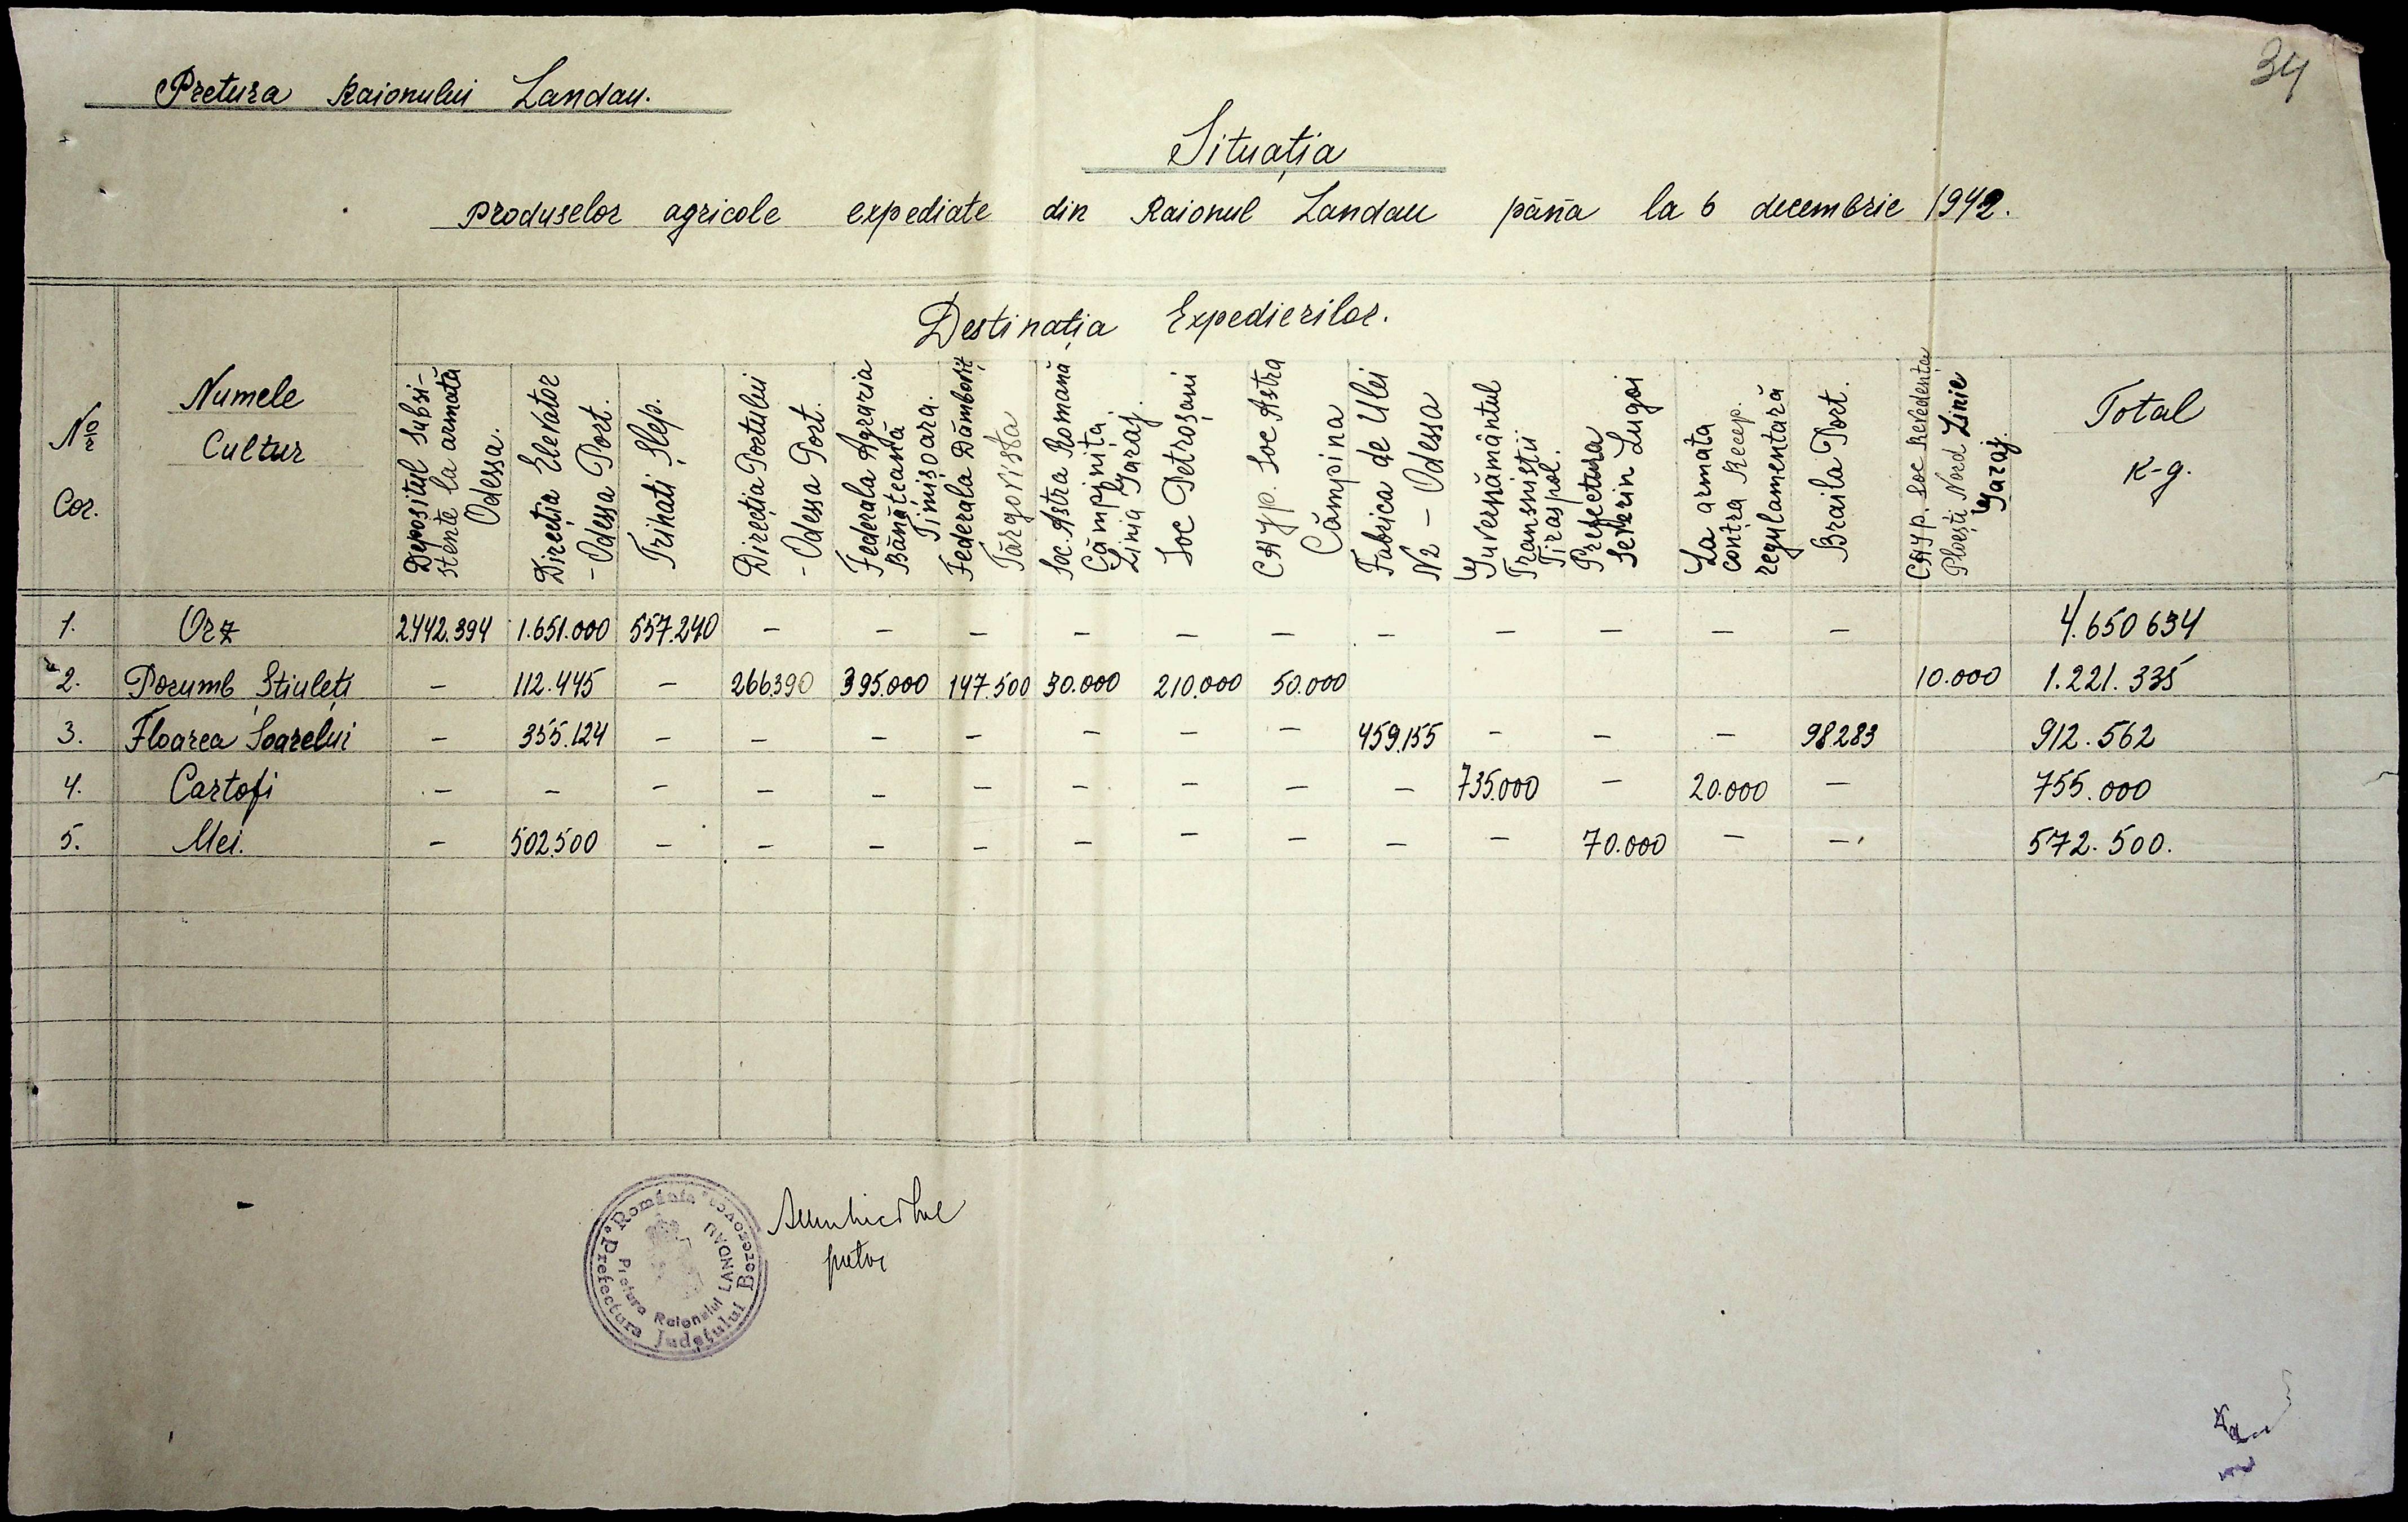 34
Pretura Raionului Landau.
Situația
produselor agricole expediate din Raionul Landau pănă la 6 decembrie 1942.
No
Cor.
Numele
Cultur
Destinația Expedierilor.
Depositul Subsi-
stente la armată
Odessa.
Direcția Elevator
- Odessa Port.
Trihati Șlep.
Direcția Portului
- Odessa Port.
Federala Agraria
Bănățeană
Timișoara.
Federala Dămboviț
Tărgoviste
Soc. Astra Romană
Cămpinița
Linia Garaj.
Soc Petroșani
Soc Astra
Cămpina
Fabrica de Ulei
N2 - Odessa
Guvernământul
Transnistrii
Tiraspol.
Prefectura
Severin Lugoj
La armata
contra Recep.
regulamentară
Braila Port.
Soc Kredenția
Ploești Nord Linie
Garaj.
Total
K-g.
1. Orz 2.442.394 1.651.000 557.240 - - - - - - - - - - - 4.650 634
2. Porumb Știuleți - 112.445 - 266.390 395.000 147.500 30.000 210.000 50.000 10.000 1.221.335
3. Floarea Soarelui - 355.124 - - - - - - - 459.155 - - - 98283 912.562
4. Cartofi - - - - - - - - - - 735.000 - 20.000 - 755.000
5. Mei. - 502.500 - - - - - - - - - 70.000 - - 572.500.
România
Prefectura Județului Berezovca
Pretura Raionului LANDAU
pretor